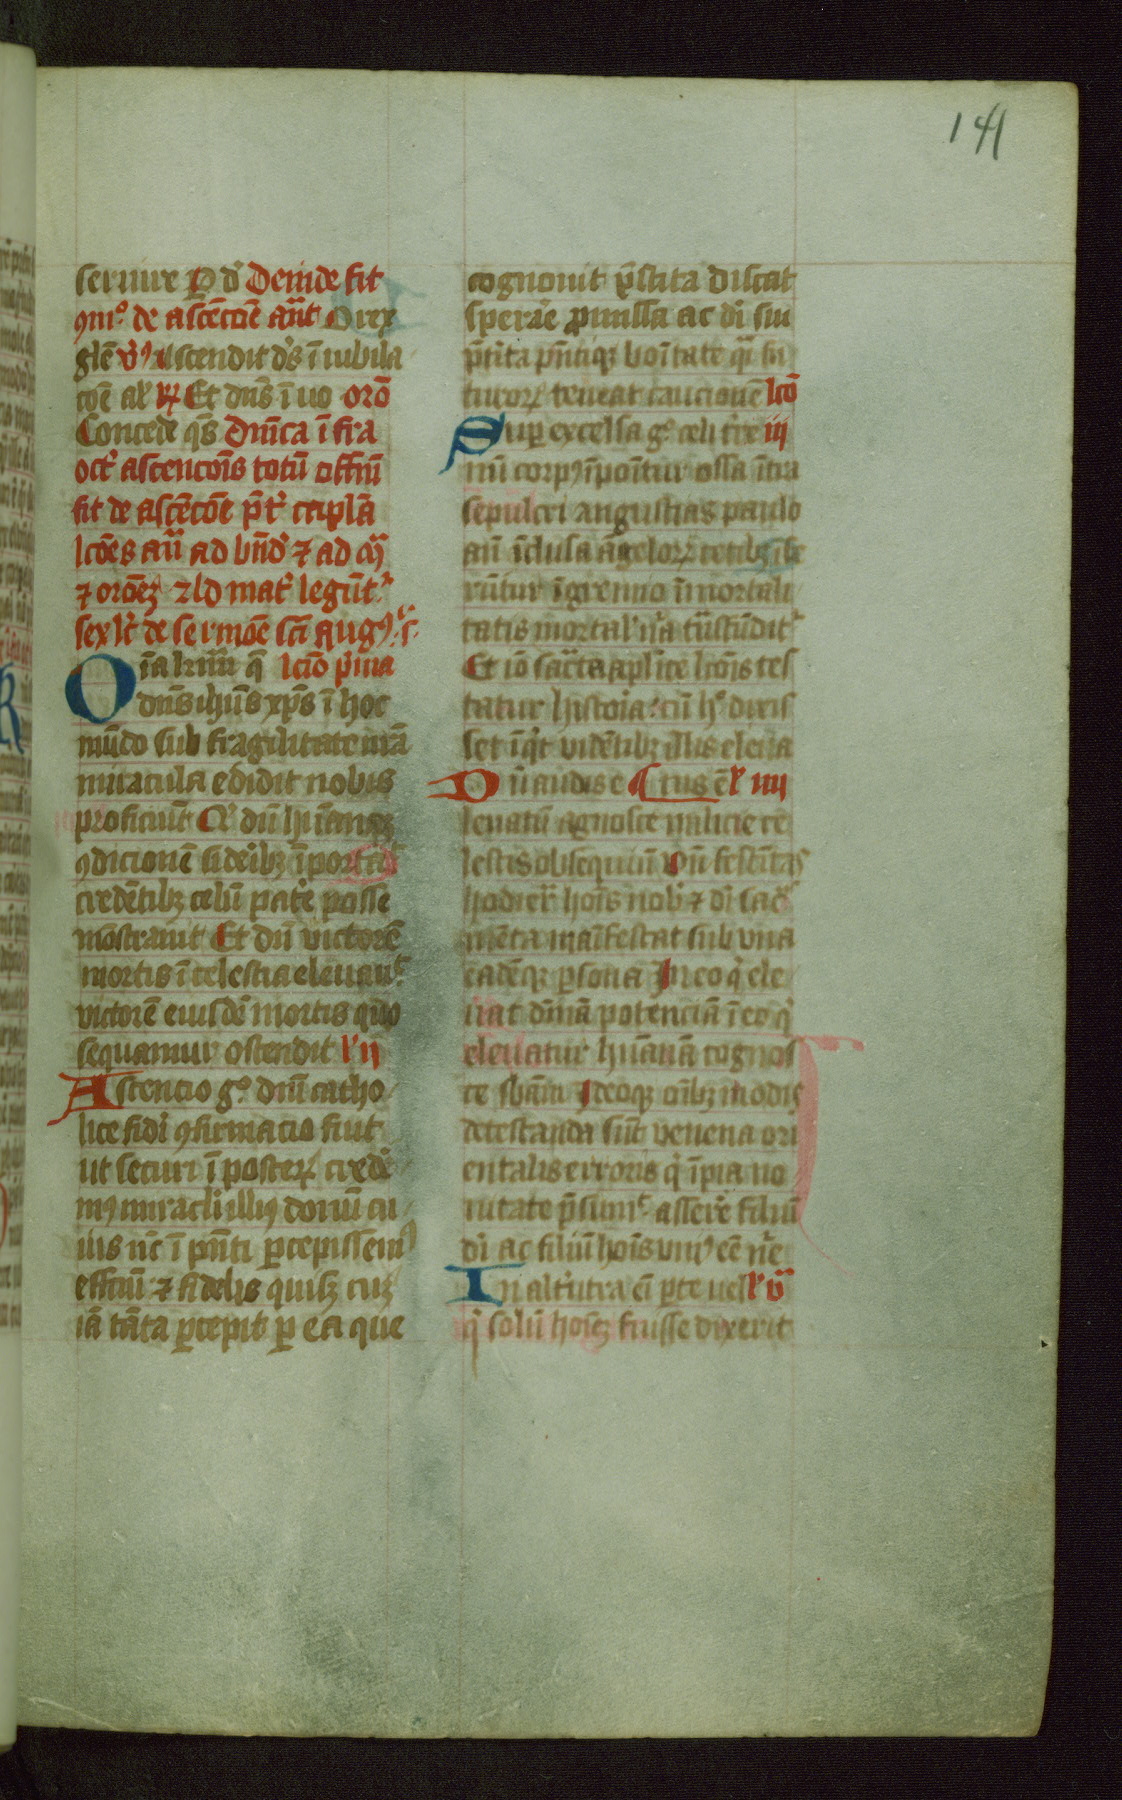 141
seruire P d' Deinde fit
9m° de ascēcōe añt O rex
glē v̉9 Ascendit d's ī iubila
cōe al' R Et dn̄s ī uo orō
Concede qs̄ Dnīca īfra
oct' ascencōīs totū offm̄
fit de ascēcōe p̄t' cap̄la
lcōes añ ad bn̄d' ⁊ ad
⁊ orōēz ⁊ ld mat' legūt'
sex lc̄ de sermōe sc̄i Aug9
Oīa q̄ lcīo p̄ma
dn̄s ihūs xp̄s ī hoc
mūdo sub fragilitate nr̄a
miracula edidit nobis
proficiūt Q' dū hūanaz
9dicionē sideribz īportat
credētibz celū pate' posse
mōstrauit Et dū victorē
mortis ī celestia eleuaut
victorē eiusdē mortis quo
sequamur ostendit l' ij
Ascencio g° dnī catho
lice fidi 9firmacio fuit
ut securi ī poster' crede'
m9 miracli illi9 donū cu
ius nc̄ ī pn̄ti p̄cepissem9
effc̄m̄ ⁊ fidelis quisz cuz
iā tāta p̄cepit p ea que
cognouit p̄stita discat
sperare p̄missa ac di su
p̄tita pn̄tiqz boītate q̄i fu
turor' teneat caucionē lcō
Sup excelsa g° celi iii
nū corp9 īponitur ossa īt̄ra
sepulcri angustias paulo
añ īclusa āgelor' cetibz īse
rūtur īgremio īmortali
tatis mortal' nr̄a t̄sfūdit'
Et iō sac̄ta aplice lc̄ois tes
tatur histoia cū h° dixis
set īq't vidētibz illis eleua
Dū audis e tus ē l' iiij
leuatū agnosce milicie ce
lestis obsequiū Vñ festītas
hodier' hoīs nob' ⁊ di sac'
mēta maīfestat sub vna
eadēqz p̄sona In eo q' ele
uat diuīā potenciā ī eo q'
eleuatur hūanā cognos
ce sb̄am Ideoqz oībz modis
detestanda sūt venena ori
entalis erroris q' īpia no
uitate p̄sum' assere filiū
di ac filiū hoīs vni9 eē nr̄e
In alt'utra ei p̄te uel l' v
q' solū hoīez fuisse dixerit